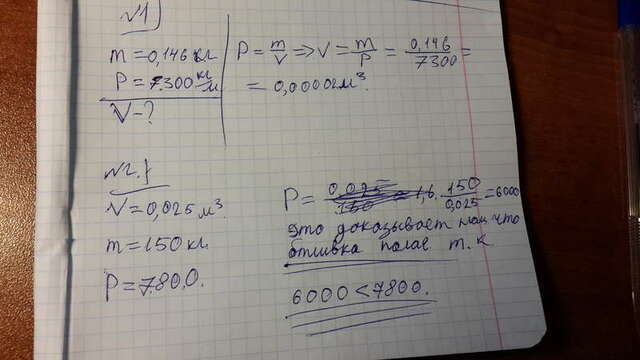 №1)
m = 0,146 кг
P = 7300 кг/м
V - ?
P = m/V => V = m/P = 0,146/7300 =
= 0,00002 м³.
№2.
V = 0,025 м³
m = 150 кг
P = 7800.
P = 150/0,025 = 6000
это доказывает нам что
отливка полая т.к
6000 < 7800.